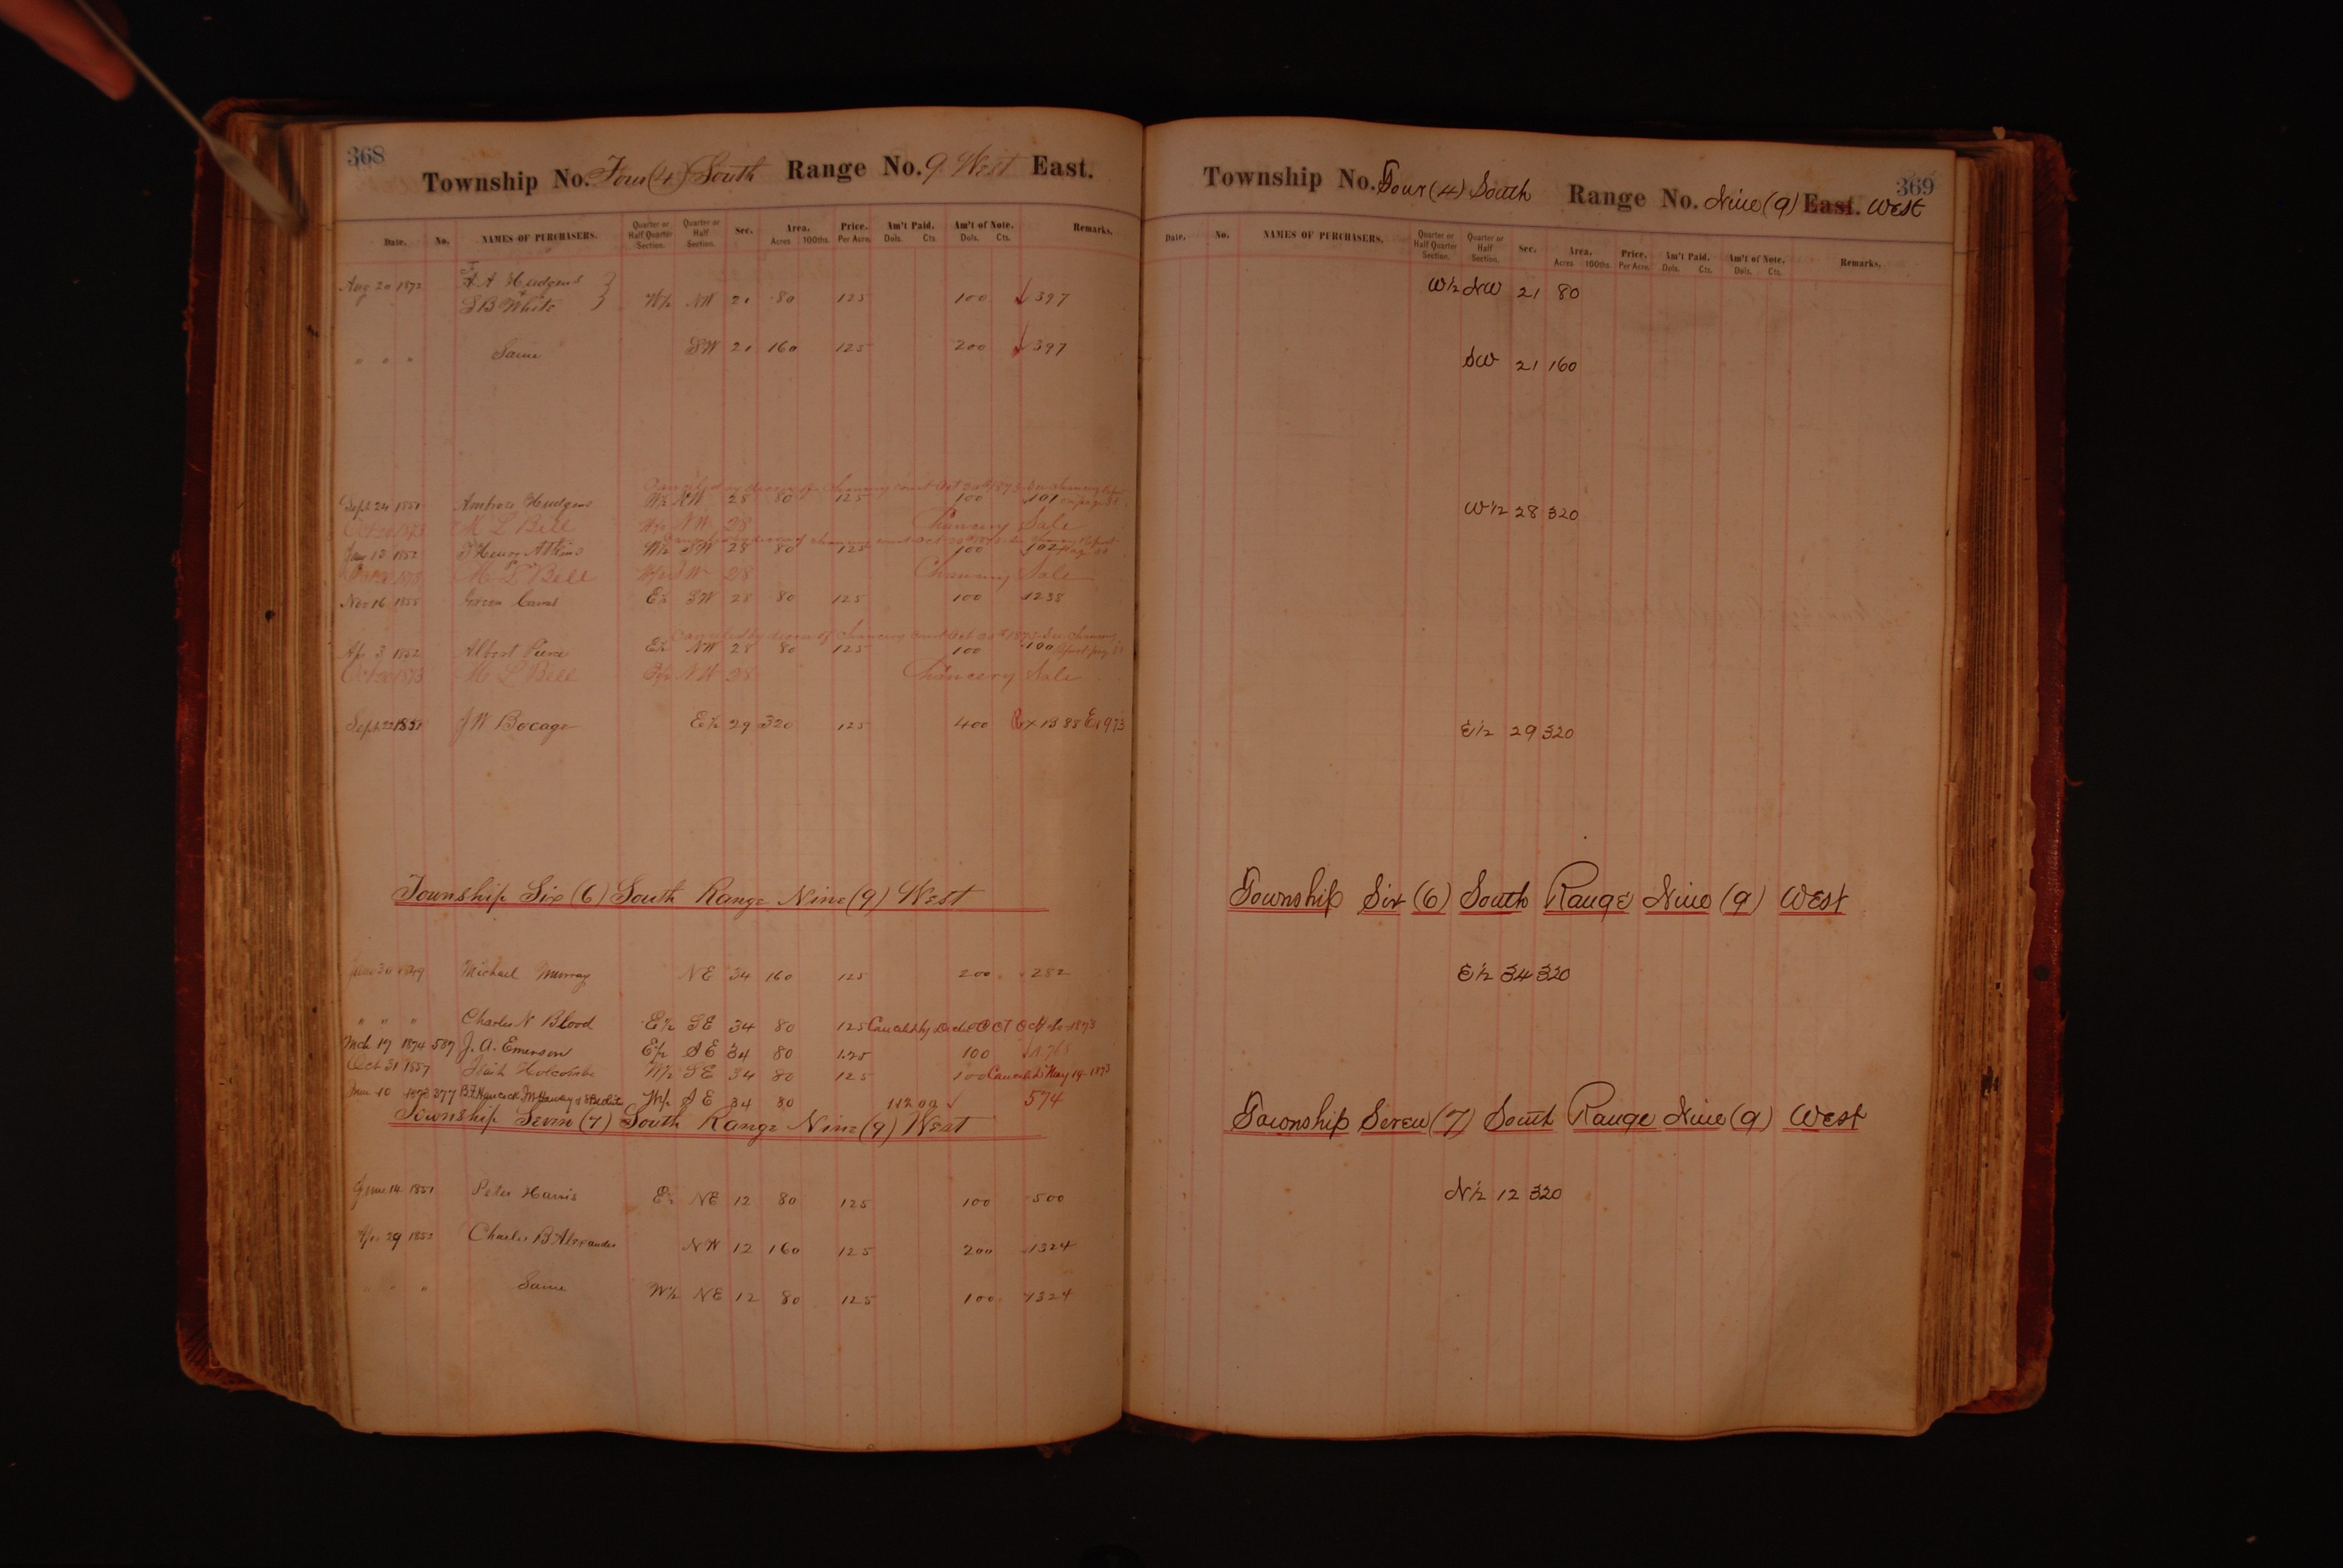 368
Township No. Four (4) South Range No. 9 West East.
Date. No. NAMES OF PURCHASERS. Quarter or Half Quarter Section. Quarter or Half Section. Sec. Area. Acres 100ths. Price. Per Acre. Am't Paid. Dols. Cts. Am't of Note. Dols. Cts. Remarks.
Aug 20 1872 A A Hudgens }
S B White } W½ NW 21 80 125 100 397
" " " Same SW 21 160 125 200 397
Canceled by decree of Chancery Court Oct 20th 1873 See Chancery Report
Sept 24 1851 Ambrose Hudgens W½ NW 28 80 125 100 101 on page
Oct 20 1873 M L Bell W½ NW 28 Chancery Sale
Jany 13 1852 J Henry Atkins W½ SW 28 80 125 100 102
M L Bell W½ SW 28 Chancery Sale
Nov 16 1855 E½ SW 28 80 125 100 1238
Canceled by decree of Chancery Court Oct 20th 1873 See Chancery
Ap 3 1852 Albert Pierce E½ NW 28 80 125 100 100 Report page
Oct 20 1873 M L Bell E½ NW 28 Chancery Sale
Sept 22 1851 J W Bocage E½ 29 320 125 400
Township Six (6) South Range Nine (9) West
1849 Michael Murray NE 34 160 125 200 282
" " " Charles N Blood E½ SE 34 80 125 Canceled by Decree Oct 1873
Mch 19 1874 589 J. A. Emerson E½ SE 34 80 1.25 100
Oct 31 1857 Holcombe W½ SE 34 80 125 100 Canceled May 19 1873
10 1873 377 B F Hancock W½ SE 34 80 112 00 574
Township Seven (7) South Range Nine (9) West
June 14 1851 Peter Harris E½ NE 12 80 125 100 500
29 1852 Charles B Alexander NW 12 160 125 200 1324
" " " Same W½ NE 12 80 125 100 1324
369
Township No. Four (4) South Range No. Nine (9) East. West
Date. No. NAMES OF PURCHASERS. Quarter or Half Quarter Section. Quarter or Half Section. Sec. Area. Acres 100ths. Price. Per Acre. Am't Paid. Dols. Cts. Am't of Note. Dols. Cts. Remarks.
W½ NW 21 80
SW 21 160
W½ 28 320
E½ 29 320
Township Six (6) South Range Nine (9) West
E½ 34 320
Township Seven (7) South Range Nine (9) West
N½ 12 320